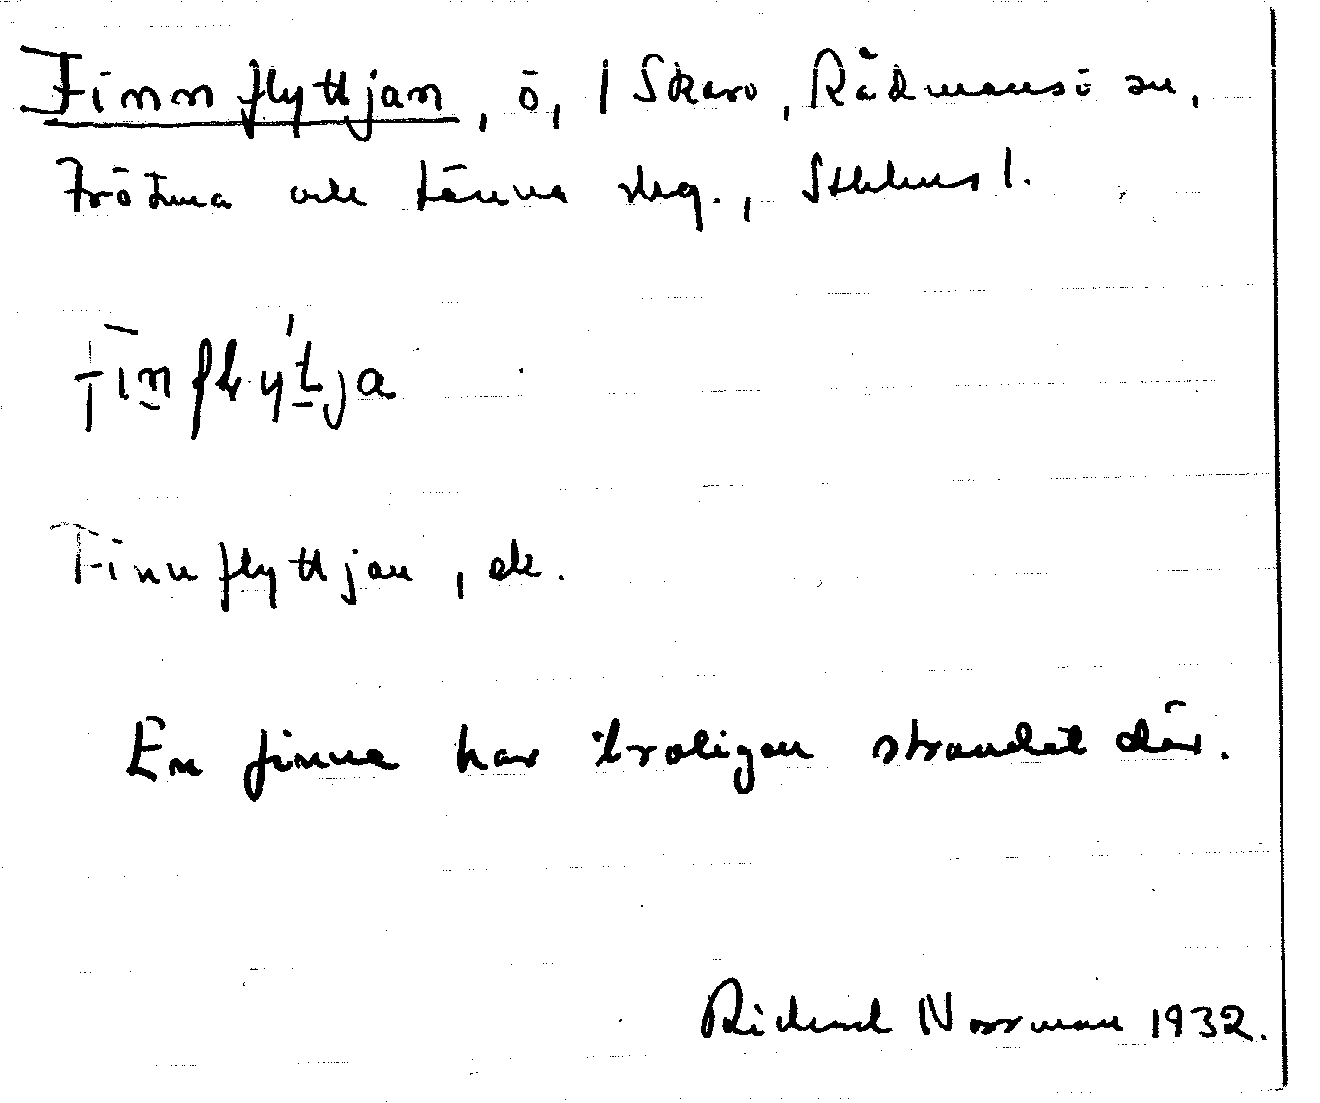 Finnflyttjan, ö, 1 Skavo, Rådmansö sn,
Frötuna och Länna skg., Sthlms l.
Finflỳtja
Finnflyttjan, ek.
En finne har troligen strandat där.
Richard Norrman 1932.